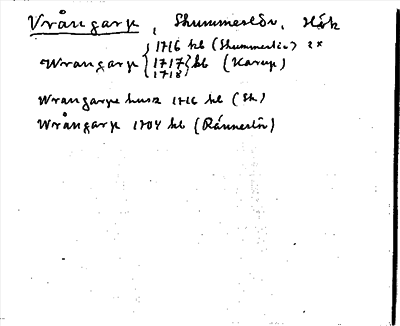 Vrångarp, Skummeslöv, Hök
Wrangarp { 1716 kb (Skummeslöv) 2x
1717 } kb (Karup)
1718
Wrangarpe husz 1716 kb (Sk)
Wrångarp 1704 kb (Ränneslöv)